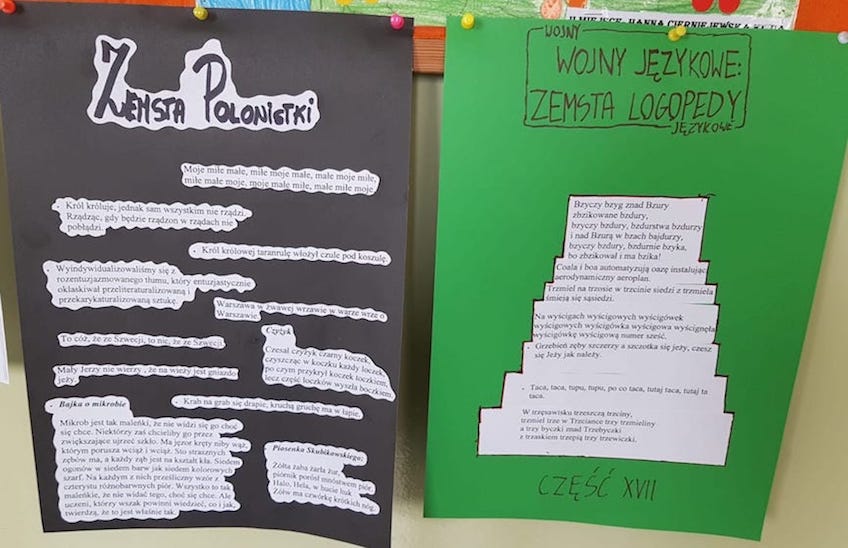 ZEMSTA POLONISTKI
Moje miłe małe, miłe moje małe, małe moje miłe,
miłe małe moje, moje małe miłe, małe miłe moje
Król króluje, jednak sam wszystkim nie rządzi.
Rządząc, gdy będzie rządzon w rządach nie
pobłądzi.
Król królowej tarantulę włożył czule pod koszulę.
Wyindywidualizowaliśmy się z
rozentuzjazmowanego tłumu, który entuzjastycznie
oklaskiwał przeliteraturalizowaną i
przekarykaturalizowaną sztukę.
Warszawa w żwawej wrzawie w warze wrze o
Warszawie.
To cóż, że ze Szwecji, to nic, że ze Szwecji.
Czyżyk
Czesał czyżyk czarny koczek,
czyszcząc w koczku każdy loczek,
po czym przykrył koczek toczkiem,
lecz część loczków wyszła boczkiem.
Mały Jerzy nie wierzy , że na wieży jest gniazdo
jeży.
Krab na grab się drapie, kruchą gruchę ma w łapie.
Bajka o mikrobie
Mikrob jest tak maleńki, że nie widzi się go choć
się chce. Niektórzy zaś chcieliby go przez
zwiększające ujrzeć szkło. Ma jęzor kręty niby wąż,
którym porusza wciąż i wciąż. Sto strasznych
zębów ma, a każdy ząb jest na kształt kła. Siedem
ogonów w siedem barw jak siedem kolorowych
szarf. Na każdym z nich prześliczny wzór z
czterystu różnobarwnych piór. Wszystko to tak
maleńkie, że nie widać tego, choć się chce. Ale
uczeni, którzy wszak powinni wiedzieć, co i jak,
twierdzą, że to jest właśnie tak.
Piosenka Skubikowskiego:
Żółta żaba żarła żur,
piórnik porósł mnóstwem piór
Halo, Hela, w bucie luk
Żółw ma czwórkę krótkich nóg.
WOJNY
WOJNY JĘZYKOWE:
ZEMSTA LOGOPEDY
JĘZYKOWE
Bzyczy bzyg znad Bzury
zbzikowane bzdury,
bzyczy bzdury, bzdurstwa bzdurzy
i nad Bzurą w bzach bajdurzy,
bzyczy bzdury, bzdurnie bzyka,
bo zbzikował i ma bzika!
Coala i boa automatyzują oazę instalując
aerodynamiczny aeroplan.
Trzmiel na trzosie w trzcinie siedzi z trzmiela
śmieją się sąsiedzi.
Na wyścigach wyścigowych wyścigówek
wyścigowych wyścigówka wyścigowa wyścignęła
wyścigówkę wyścigową numer sześć.
Grzebień zęby szczerzy a szczotka się jeży, czesz
się Jeży jak należy.
Taca, taca, tupu, tupu, po co taca, tutaj taca, tutaj ta
taca.
W trzęsawisku trzeszczą trzciny,
trzmiel trze w Trzciance trzy trzmieliny
a trzy byczki znad Trzebyczki
z trzaskiem trzepią trzy trzewiczki.
CZĘŚĆ XVII